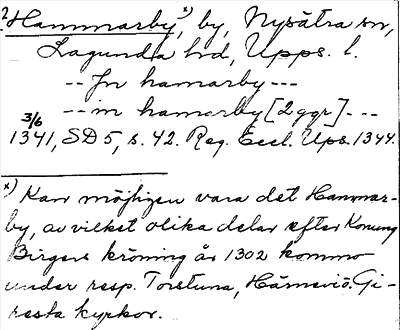 ?Hammarby,x) by, Nysätra sn,
Lagunda hd, Upps. l.
--Jn hamarby---
--in hamarby [2 ggr]---
3/6
1341, SD 5, s. 42. Reg. Eccl. Ups. 1344.
x) Kan möjligen vara det Hammar-
by, av vilket olika delar efter Konung
Birgers kröning år 1302 kommo
under resp. Torstuna, Härnevi o. Gi-
resta kyrkor.